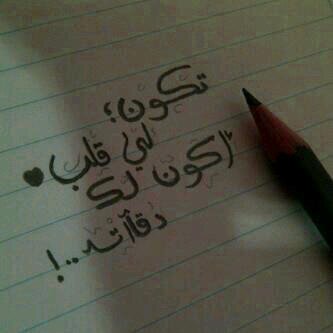 تكون؛
لي قلب
أكون لك
دقاأته..!